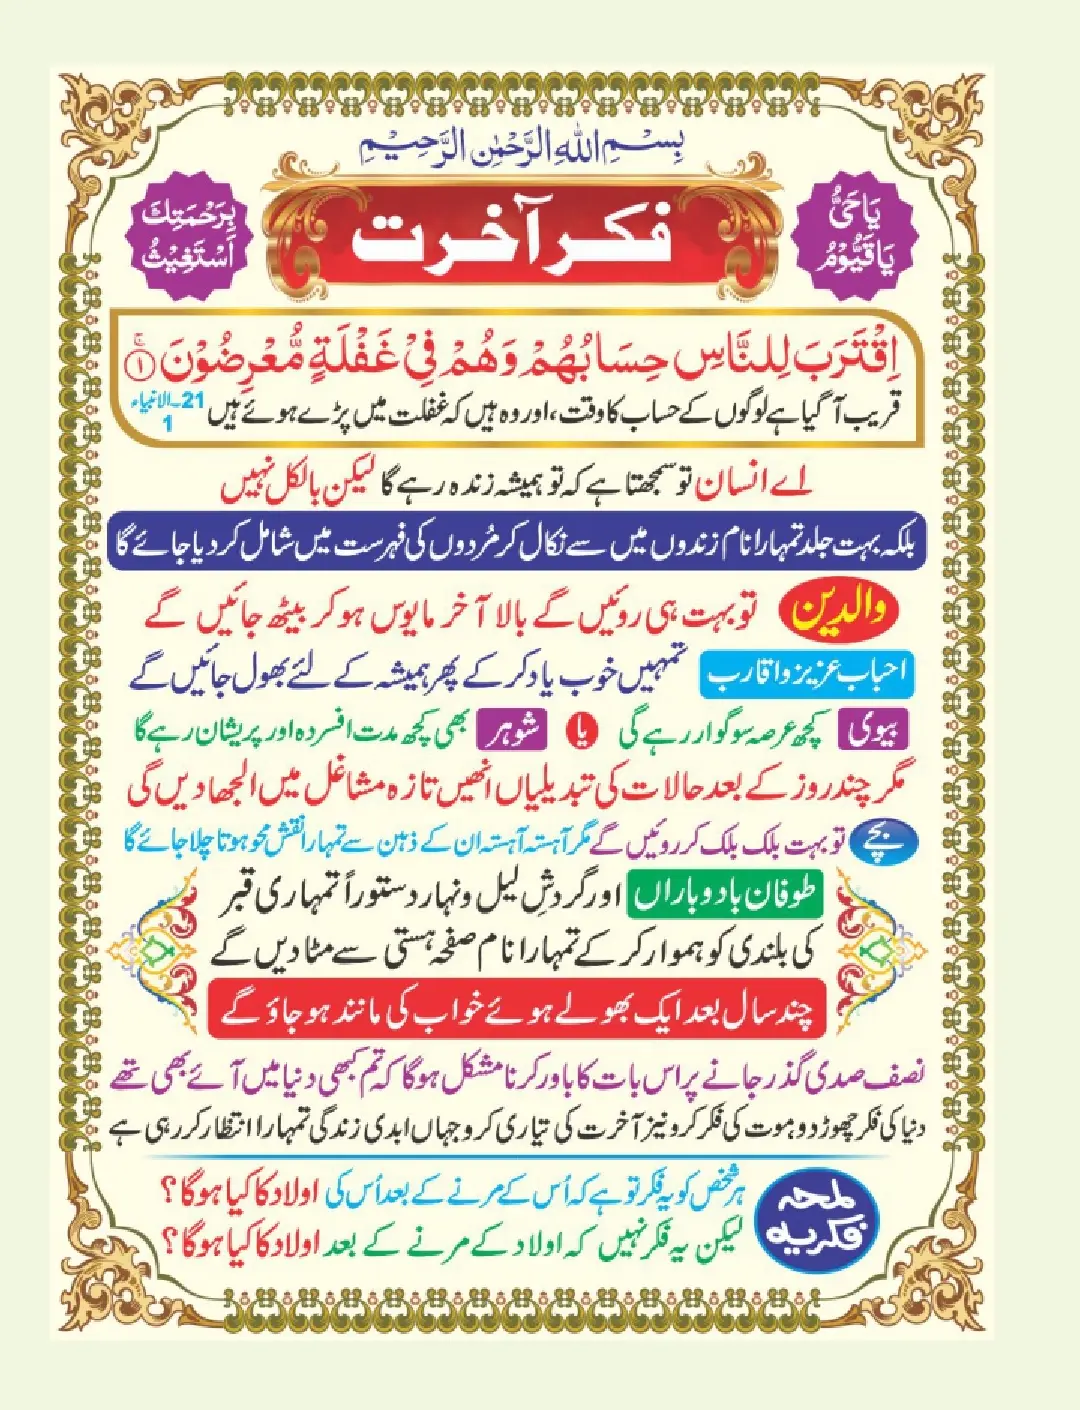 بِسْمِ اللهِ الرَّحْمٰنِ الرَّحِيْمِ
يَا حَيُّ
يَا قَيُّوْمُ
فکر آخرت
بِرَحْمَتِكَ
اَسْتَغِيْثُ
اِقْتَرَبَ لِلنَّاسِ حِسَابُهُمْ وَهُمْ فِيْ غَفْلَةٍ مُّعْرِضُوْنَ ۚ ١
قریب آ گیا ہے لوگوں کے حساب کا وقت، اور وہ ہیں کہ غفلت میں پڑے ہوئے ہیں 21۔الانبیاء 1
اے انسان تو سمجھتا ہے کہ تو ہمیشہ زندہ رہے گا لیکن بالکل نہیں
بلکہ بہت جلد تمہارا نام زندوں میں سے نکال کر مُردوں کی فہرست میں شامل کر دیا جائے گا
والدین تو بہت ہی روئیں گے بالا آخر مایوس ہو کر بیٹھ جائیں گے
احباب عزیز و اقارب تمہیں خوب یاد کر کے پھر ہمیشہ کے لئے بھول جائیں گے
بیوی کچھ عرصہ سوگوار رہے گی یا شوہر بھی کچھ مدت افسردہ اور پریشان رہے گا
مگر چند روز کے بعد حالات کی تبدیلیاں انھیں تازہ مشاغل میں الجھا دیں گی
بچے تو بہت بلک بلک کر روئیں گے مگر آہستہ آہستہ ان کے ذہن سے تمہارا نقش محو ہوتا چلا جائے گا
طوفان باد و باراں اور گردشِ لیل و نہار دستوراً تمہاری قبر
کی بلندی کو ہموار کر کے تمہارا نام صفحہ ہستی سے مٹا دیں گے
چند سال بعد ایک بھولے ہوئے خواب کی مانند ہو جاؤ گے
نصف صدی گذر جانے پر اس بات کا باور کرنا مشکل ہوگا کہ تم کبھی دنیا میں آئے بھی تھے
دنیا کی فکر چھوڑ دو، موت کی فکر کرو نیز آخرت کی تیاری کرو جہاں ابدی زندگی تمہارا انتظار کر رہی ہے
لمحہ
فکریہ
ہر شخص کو یہ فکر تو ہے کہ اُس کے مرنے کے بعد اُس کی اولاد کا کیا ہوگا؟
لیکن یہ فکر نہیں کہ اولاد کے مرنے کے بعد اولاد کا کیا ہوگا؟